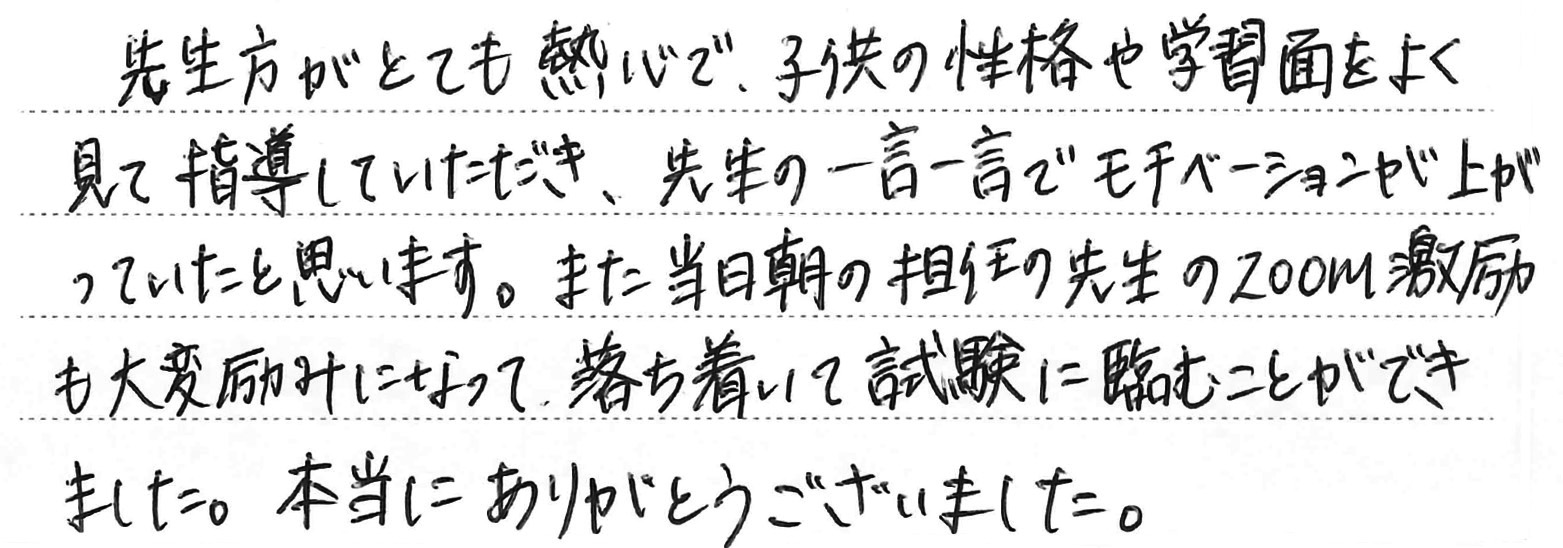 先生方がとても熱心で、子供の性格や学習面をよく
見て指導していただき、先生の一言一言でモチベーションが上が
っていたと思います。また当日朝の担任の先生のZOOM激励
も大変励みになって、落ち着いて試験に臨むことができ
ました。本当にありがとうございました。